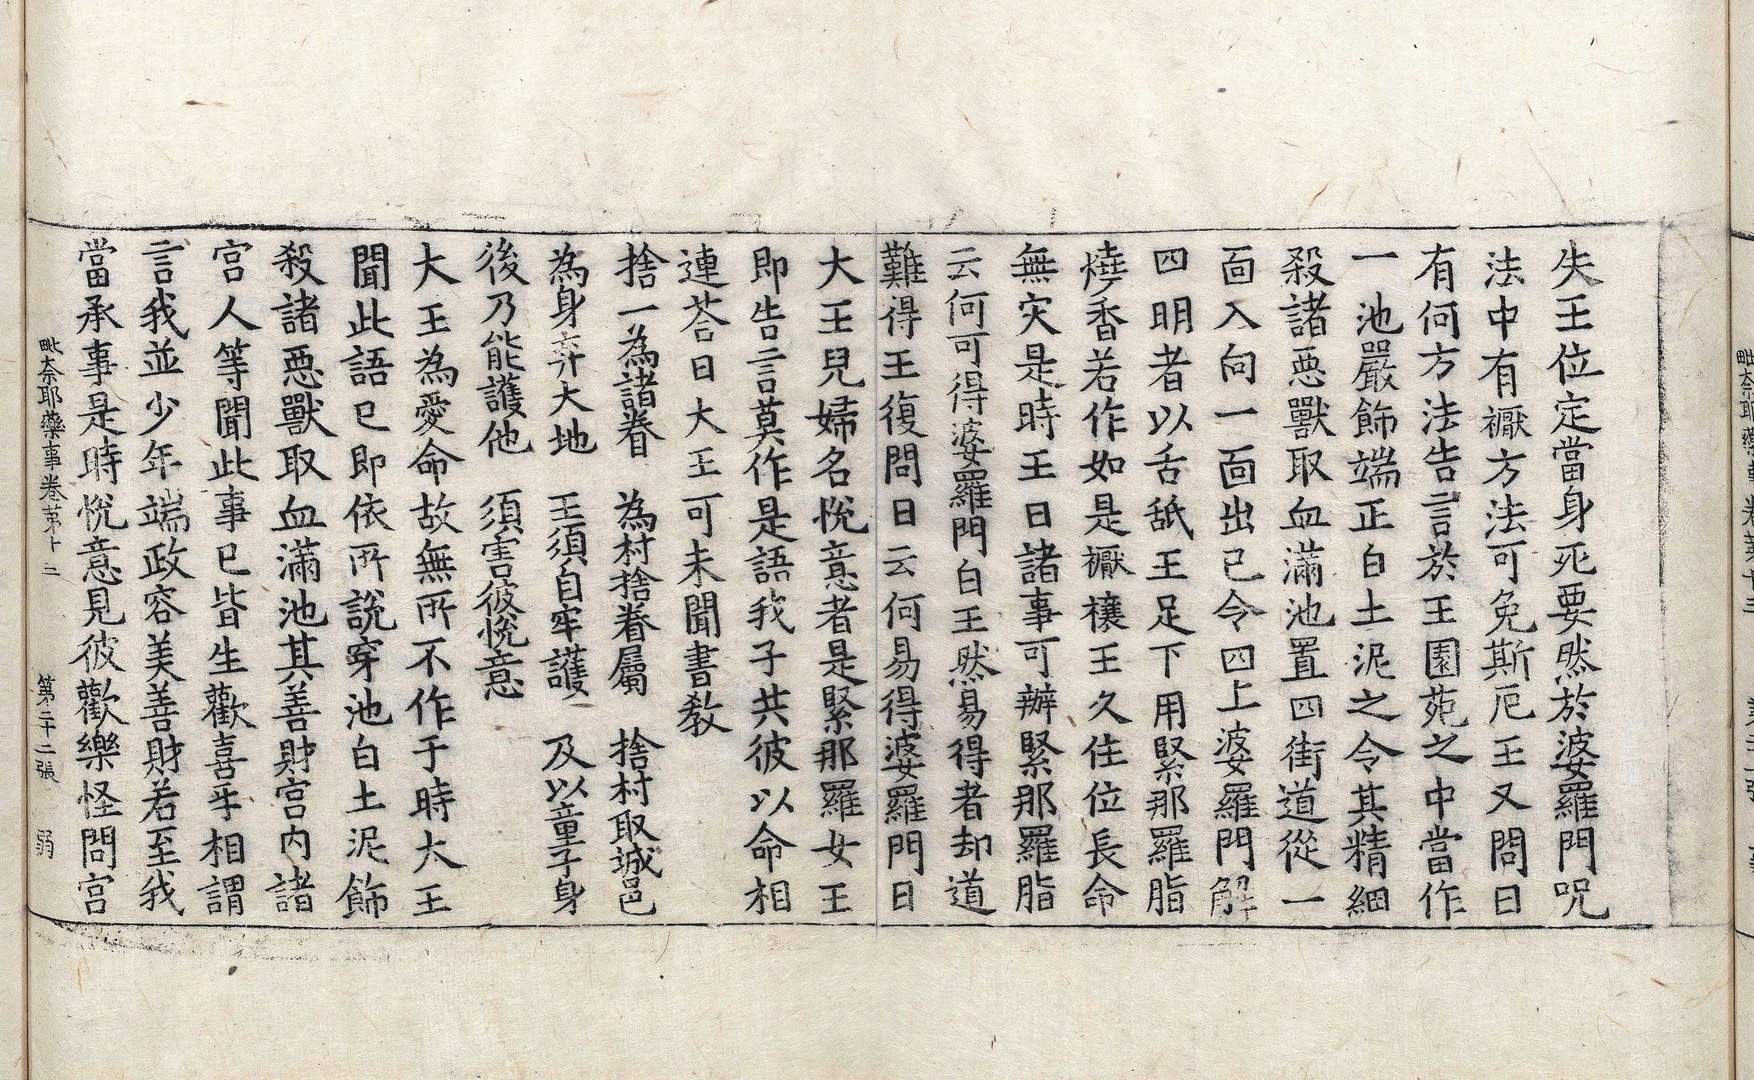 失王位定當身死要然於婆羅門呪
法中有禳方法可免斯厄王又問曰
有何方法告言於王園苑之中當作
一池嚴飾端正白土泥之令其精細
殺諸惡獸取血滿池置四街道從一
面入向一面出已令四上婆羅門解
四明者以舌舐王足下用緊那羅脂
燒香若作如是禳禳王久住位長命
無灾是時王曰諸事可辦緊那羅脂
云何可得婆羅門白王然易得者却道
難得王復問曰云何易得婆羅門曰
大王兒婦名悅意者是緊那羅女王
即告言莫作是語我子共彼以命相
連荅曰大王可未聞書教
捨一為諸眷　為村捨眷屬　捨村取城邑
為身弃大地　王須自牢護　及以童子身
後乃能護他　須害彼悅意
大王為愛命故無所不作于時大王
聞此語已即依所說穿池白土泥飾
殺諸惡獸取血滿池其善財宮內諸
宮人等聞此事已皆生歡喜㸦相謂
言我並少年端政容美善財若至我
當承事是時悅意見彼歡樂怪問宮
毗奈耶藥事卷苐十三　第二十二張　弱